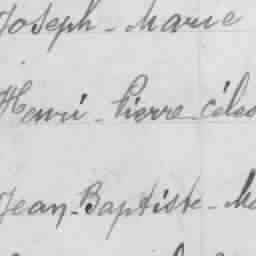 Joseph - Marie
Henri - Pierre - Céles
Jean - Baptiste - Ma